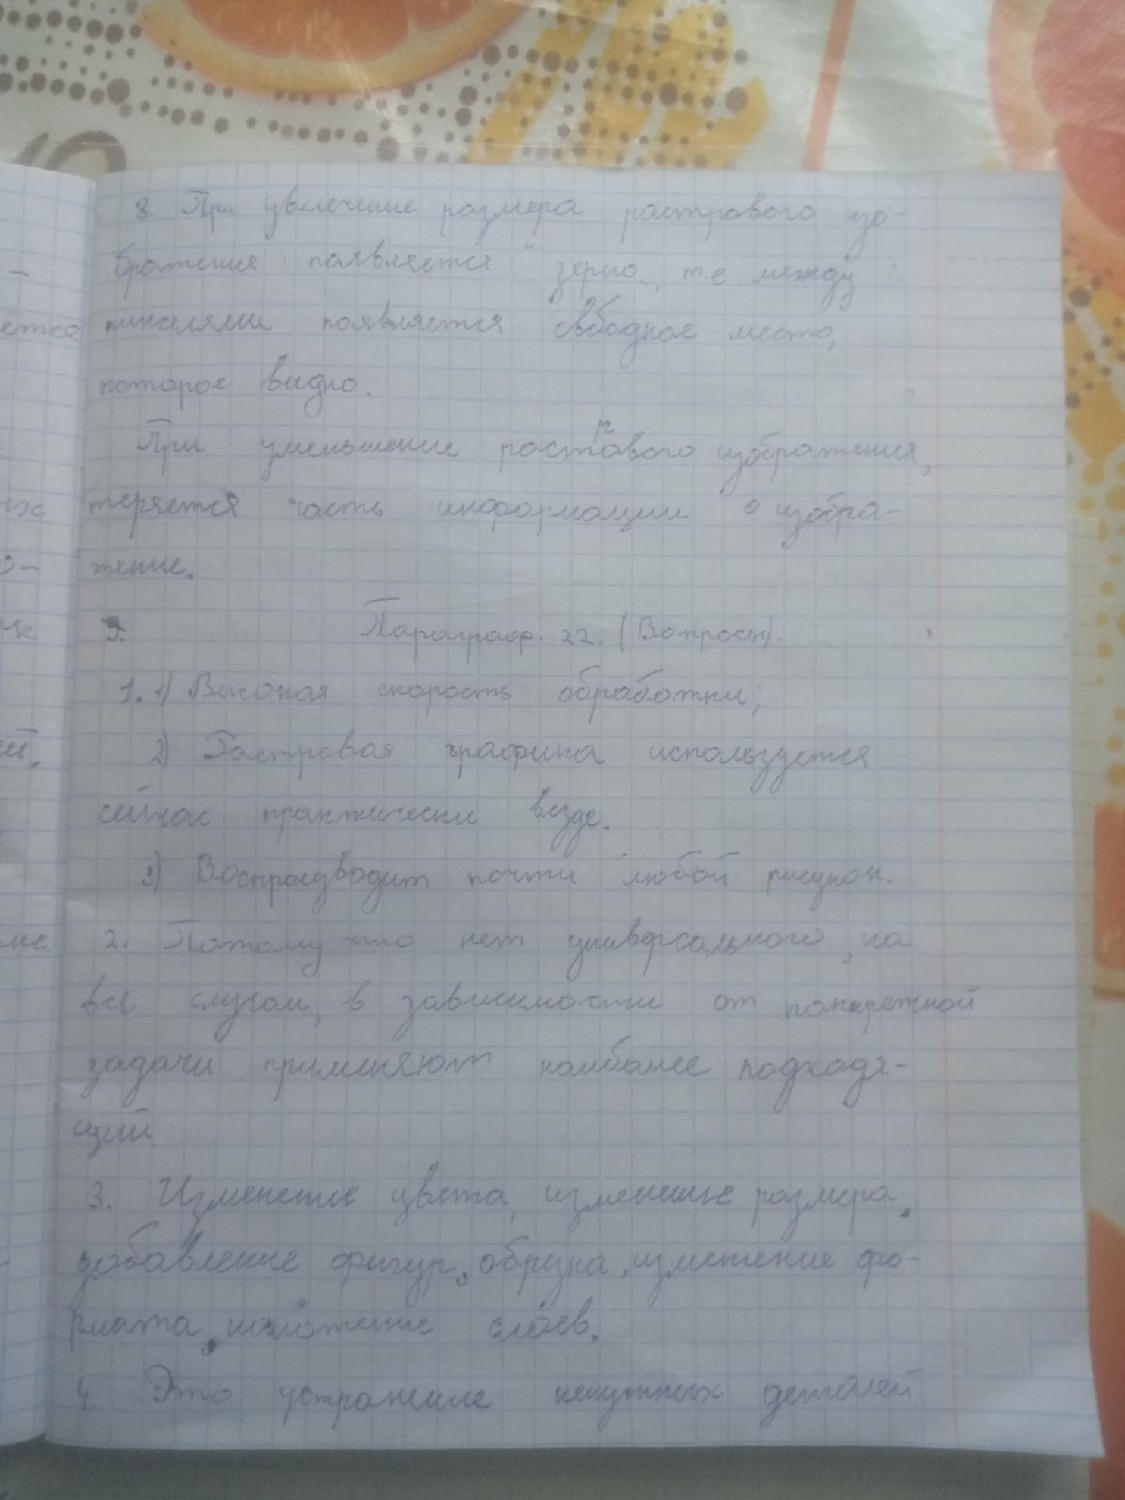 8. При увелечение размера растрового изо-
бражение появляется "зерно", т.е между
пикселями появляется свободное место,
которое видно.
При уменьшение растрового изображения,
теряется часть информации о изобра-
жение.
Параграф. 22. (Вопросы).
1. 1) Высокая скорость обработки;
2) Растровая графика используется
сейчас практически везде.
3) Воспроизводит почти любой рисунок.
2. Потому что нет универсального, на
все случаи, в зависимости от конкретной
задачи применяют наиболее подходя-
щий.
3. Изменение цвета, изменение размера,
добавление фигур, обрезка, изменение фо-
рмата, наложение слоев.
4. Это устранение ненужных деталей